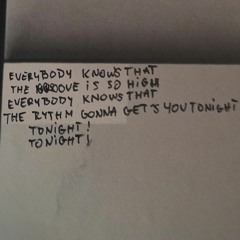 EVERYBODY KNOWS THAT
THE OVE IS SO HIGH
EVERYBODY KNOWS THAT
THE RYTHM GONNA GETS YOU TONIGHT
TONIGHT!
TONIGHT!